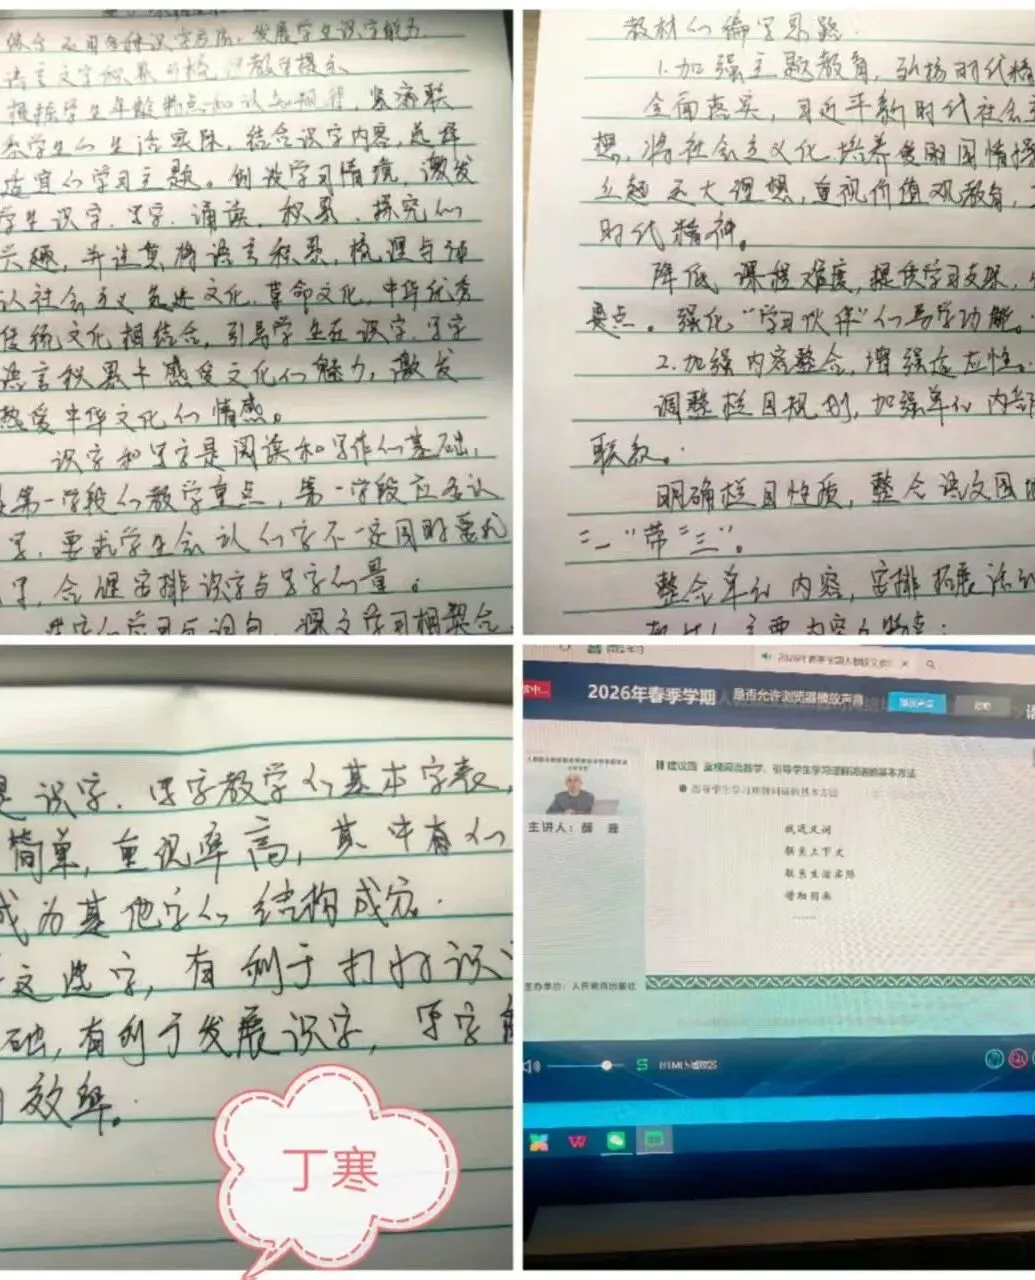 综合运用多种识字方法，发展学生识字能力
语言文字积累与梳理教学提示
根据学生年龄特点和认知规律，紧密联
系学生的生活实际，结合识字内容，选择
适宜的学习主题。创设学习情境，激发
学生识字、写字、诵读、积累、探究的
兴趣，并注意将语言积累，梳理与体
认社会主义先进文化、革命文化、中华优秀
传统文化相结合，引导学生在识字、写字
语言积累中感受文化的魅力，激发
热爱中华文化的情感。
识字和写字是阅读和写作的基础，
是第一学段的教学重点，第一学段应多认
写，要求学生会认的字不一定同时要求
写，合理安排识字与写字的量。
学习与词句、课文学习相整合
教材的编写思路
1.加强主题教育，弘扬时代精
全面落实，习近平新时代社会主
想，将社会主义化，培养发明国情
立起远大理想，重视价值观教育，
时代精神。
降低课程难度，提供学习支架，
要点。强化“学习伙伴”们导学功能。
2.加强内容整合，增强适应性。
调整栏目规划，加强单的内部
联系。
明确栏目性质，整合语文园地
“一”带“三”。
整合单的内容，安排拓展活动
主要内容的特点：
是识字、写字教学的基本字表，
简单，重现率高，其中有的
成为其他字的结构成分。
这些字，有利于打好识
础，有利于发展识字，写字
效率。
丁寒
2026年春季学期人教版文
2026年春季学期
是否允许浏览器播放声音
建议四 重视词语教学、引导学生学习理解词语的基本方法
指导学生学习理解词语的基本方法
主讲人：薛
找近义词
联系上下文
联系生活实际
借助图画
……
主办单位：人民教育出版社
HTML5播放器